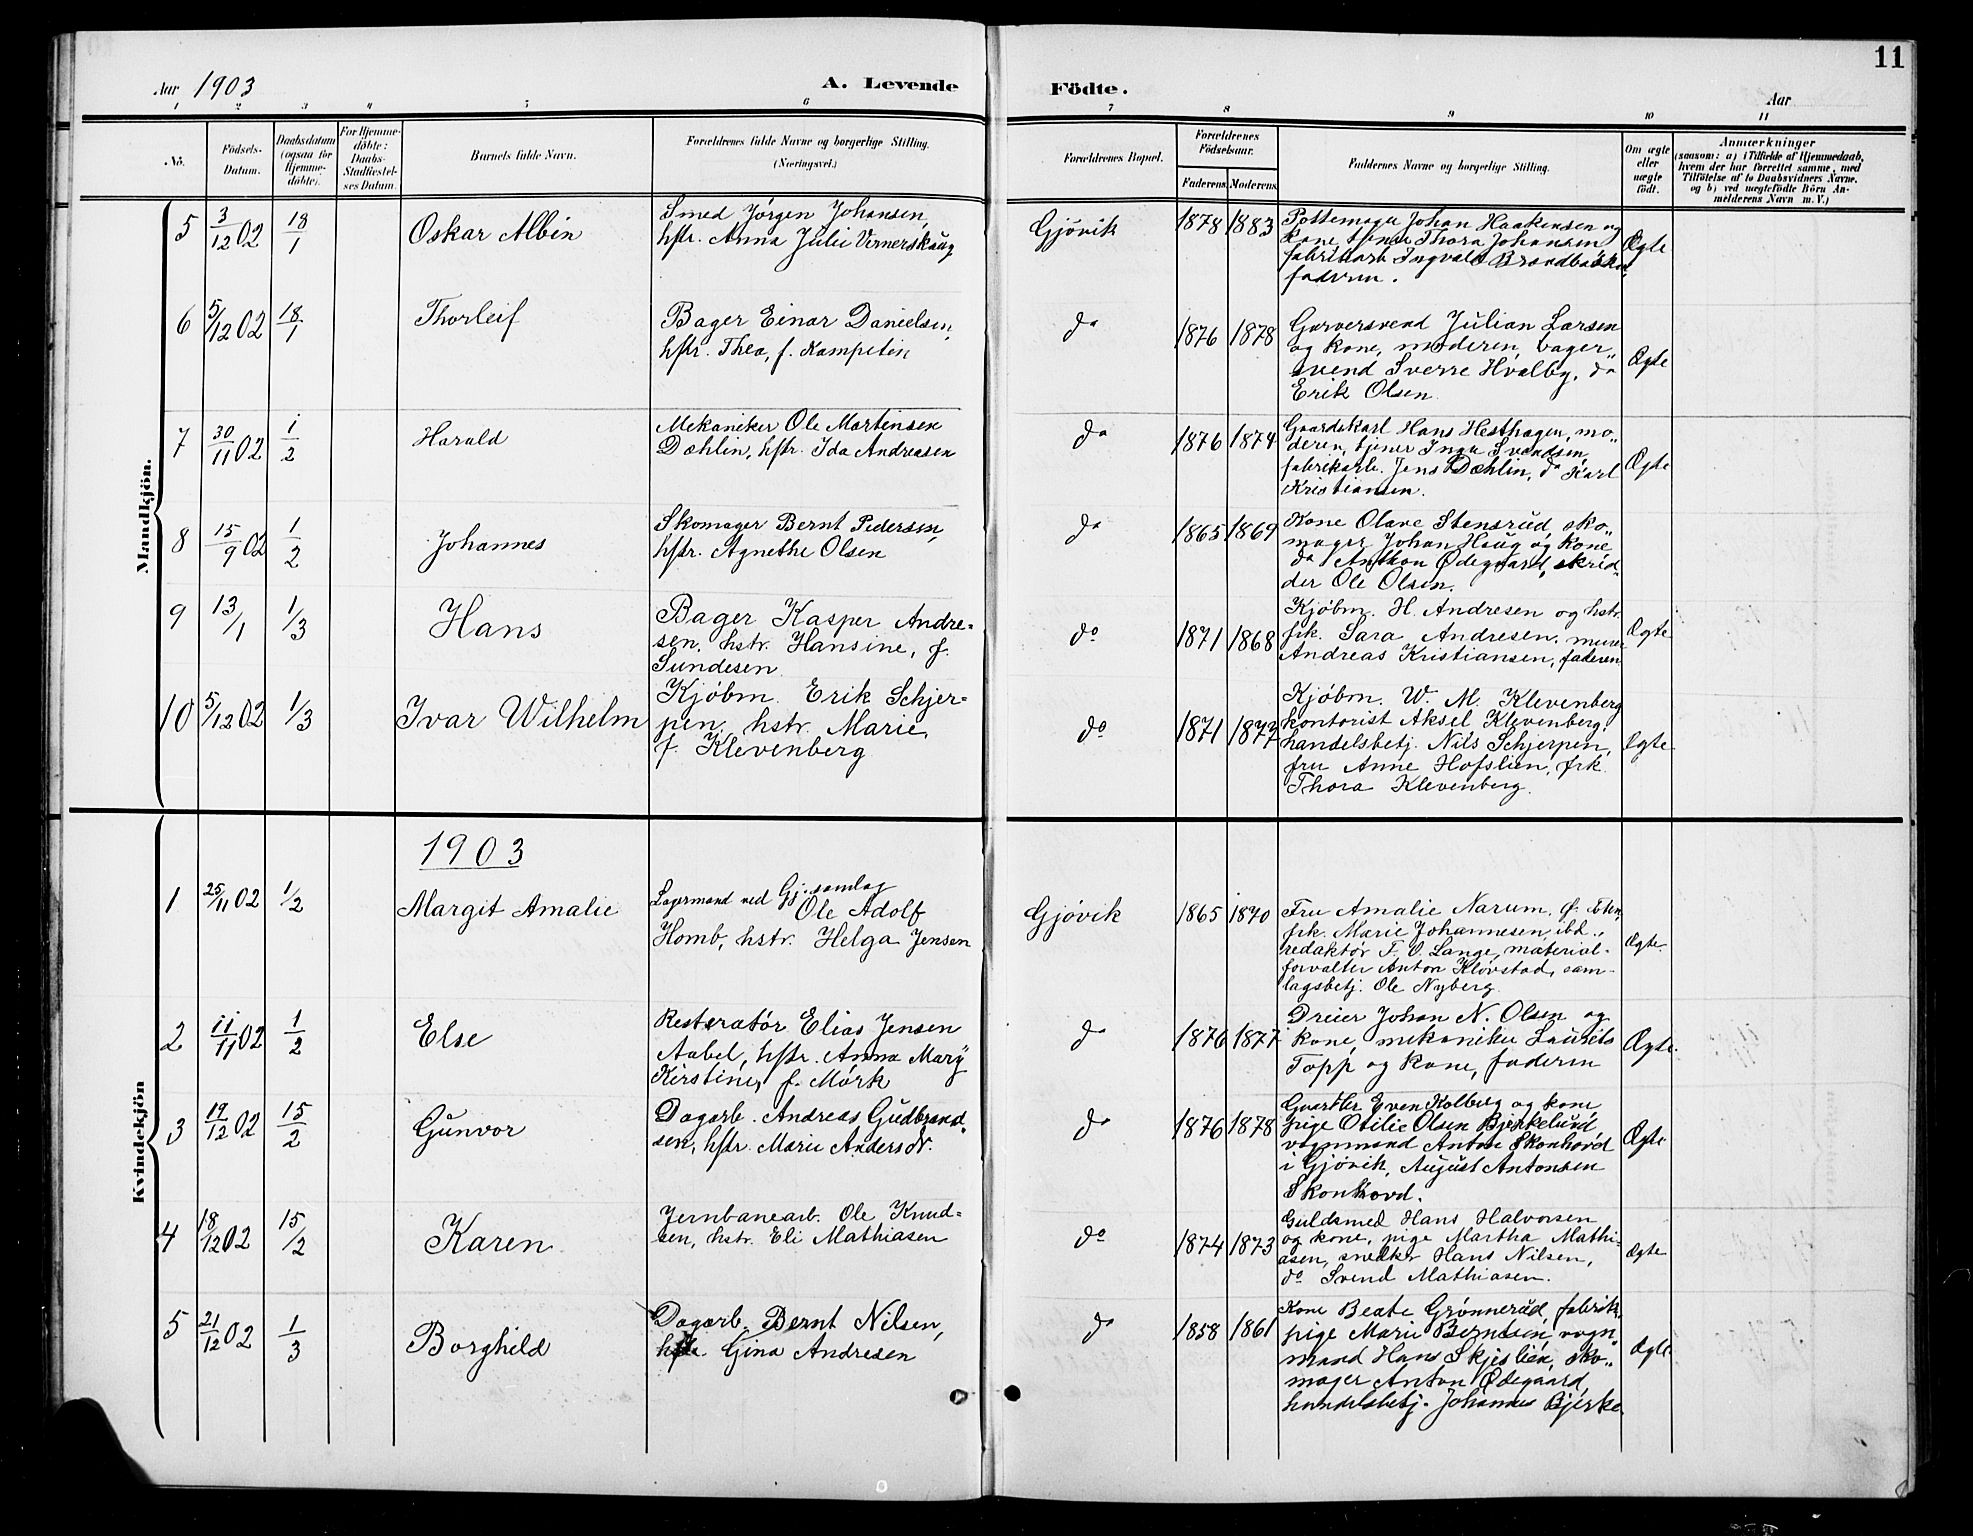 11
Aar 1903
A. Levende Födte.
Aar
1 2 3 4 5 6 7 8 9 10 11
No.
Födsels-Datum.
Daabsdatum (ogsaa for Hjemme-döbte).
For Hjemme-döbte: Daabs-Stadfæstel-ses Datum.
Barnets fulde Navn.
Forældrenes fulde Navne og borgerlige Stilling. (Næringsvei.)
Forældrenes Bopæl.
Forældrenes Födselsaar.
Faderens. Moderens.
Faddernes Navne og borgerlige Stilling.
Om ægte eller uægte født.
Anmærkninger
(saasom: a) i Tilfælde af Hjemmedaab,
hvem der har forrettet samme, med
Tilföielse af to Daabsvidners Navne,
og b) ved uægtefødte Börn An-
melderens Navn m. V.)
Mandkjön.
5 3/12 02 18/1 Oskar Albin
Smed Jörgen Johansen,
hstr. Anna Julie
Gjövik 1878 1883
Pottemager Johan Haakensen og
kone, tjener Thora Johansen
fabrikarb. Ingvald
faderen.
Ægte
6 5/12 02 18/1 Thorleif
Bager Einar Danielsen,
hstr. Thea, f.
do 1876 1878
Garversvend Julian Larsen
og kone, moderen, bager-
svend Sverre Hvalby, do
Erik Olsen
Ægte
7 30/11 02 1/2 Harald
Mekaniker Ole Martinsen
Dæhlin, hstr. Ida Andreasen
do 1876 1874
Gaardskarl Hans Hesthagen, mo-
deren, tjener Inga Svendsen,
fabrikarb. Jens Dæhlin, do Karl
Kristiansen.
Ægte
8 15/9 02 1/2 Johannes
Skomager Bernt Pedersen,
hstr. Agnethe Olsen
do 1865 1869
Kone Olave Stensrud, sko-
mager Johan Haug og kone
do Anthon Ødegaard, skræd-
der Ole Olsen.
9 13/1 1/3 Hans
Bager Kasper Andre-
sen, hstr. Hansine, f.
Sundesen
do 1871 1868
Kjøbm. H. Andresen og hstr.
frk. Sara Andresen, murer
Andreas Kristiansen, faderen
Ægte
10 5/12 02 1/3 Ivar Wilhelm
Kjøbm. Erik Schjer-
pen, hstr. Marie,
f. Klevenberg
do 1871 1872
Kjøbm. W. M. Klevenberg
kontorist Aksel Klevenberg,
handelsbetj. Nils Schjerpen,
fru Anne Hofslien, frk.
Thora Klevenberg.
Ægte
Kvindekjön
1903
1 25/11 02 1/2 Margit Amalie
Lagermand ved Gj. samlag
Ole Adolf
Homb, hstr. Helga Jensen
Gjövik 1865 1870
Fru Amalie Narum,
frk. Marie Johannesen ibd.,
redaktør F. O. Lange, material-
forvalter Anton Kløvstad, sam-
lagsbetj. Ole Nyberg.
Ægte.
2 11/11 02 1/2 Else
Restoratör Elias Jensen
Aabel, hstr. Anna Mary
Kirstine, f. Mörk
do 1876 1877
Dreier Johan N. Olsen og
kone, mekaniker Laurits
Topp og kone, faderen
Ægte.
3 19/12 02 15/2 Gunvor
Dagarb. Andreas Gudbrand-
sen, hstr. Marie Andersdr.
do 1876 1878
Even Kolberg og kone,
pige Otilie Olsen Bjerkelund,
vognmand Anton Skonhovd
i Gjövik, August Antonsen
Skonhovd.
Ægte
4 18/12 02 15/2 Karen
Jernbanearb. Ole Knud-
sen, hstr. Eli Mathiasen
do 1874 1873
Guldsmed Hans Halvorsen
og kone, pige Martha Mathi-
asen, snedker Hans Nilsen,
do Svend Mathiasen.
Ægte
5 21/12 02 1/3 Borghild
Dagarb. Bernt Nilsen,
hstr. Gina Andresen
do 1858 1861
Kone Beate Grønnerud, fabrik-
pige Marie Berntsen, vogn-
mand Hans Skjeslien, sko-
mager Anton Ødegaard,
handelsbetj. Johannes Bjerke.
Ægte